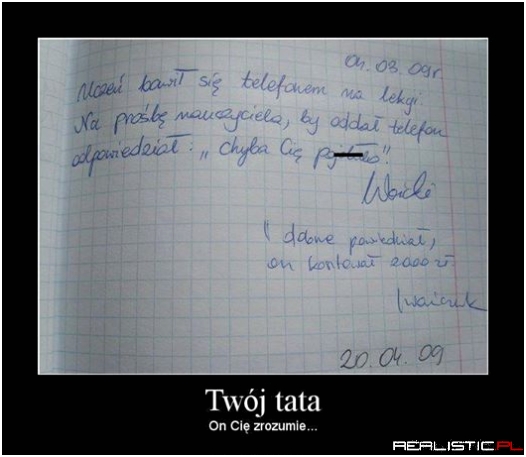 01.03.09r.
Uczeń bawił się telefonem na lekcji.
Na prośbę nauczyciela, by oddał telefon
odpowiedział: „Chyba Cię
dobrze powiedział,
on kosztował 2000 zł
20.04.09
Twój tata
On Cię zrozumie...
REALISTIC.PL